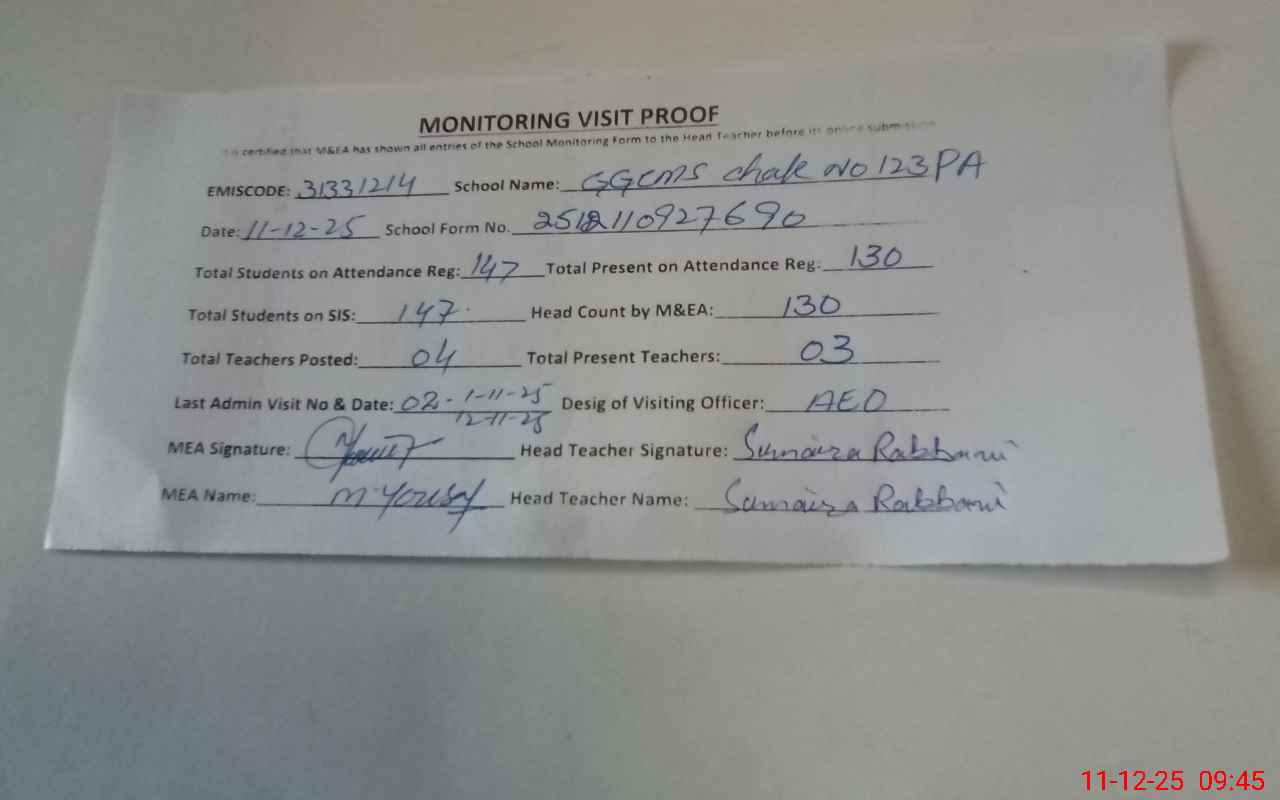 MONITORING VISIT PROOF
It is certified that M&EA has shown all entries of the School Monitoring Form to the Head Teacher before its online submission
EMISCODE: 31331214 School Name: GGCMS chak No 123PA
Date: 11-12-25 School Form No. 2512110927690
Total Students on Attendance Reg: 147 Total Present on Attendance Reg. 130
Total Students on SIS: 147. Head Count by M&EA: 130
Total Teachers Posted: 04 Total Present Teachers: 03
Last Admin Visit No & Date: 02 - 1-11-25 Desig of Visiting Officer: AEO
12-11-25
MEA Signature: Head Teacher Signature: Sumaira Rabbani
MEA Name: M. Yousaf Head Teacher Name: Sumaira Rabbani
11-12-25 09:45